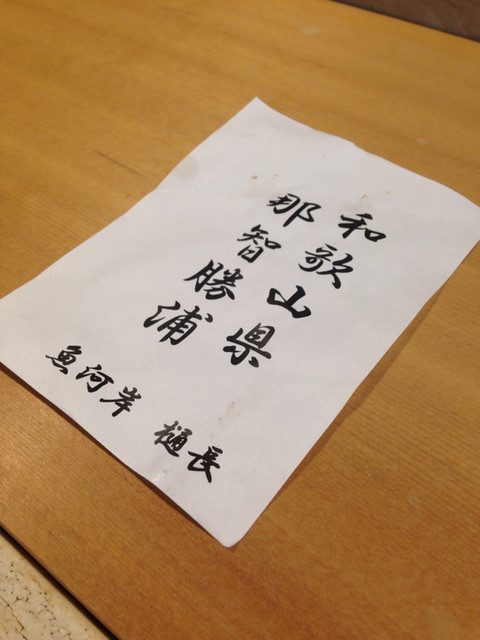 和歌山県
那智勝浦
魚河岸 樋長